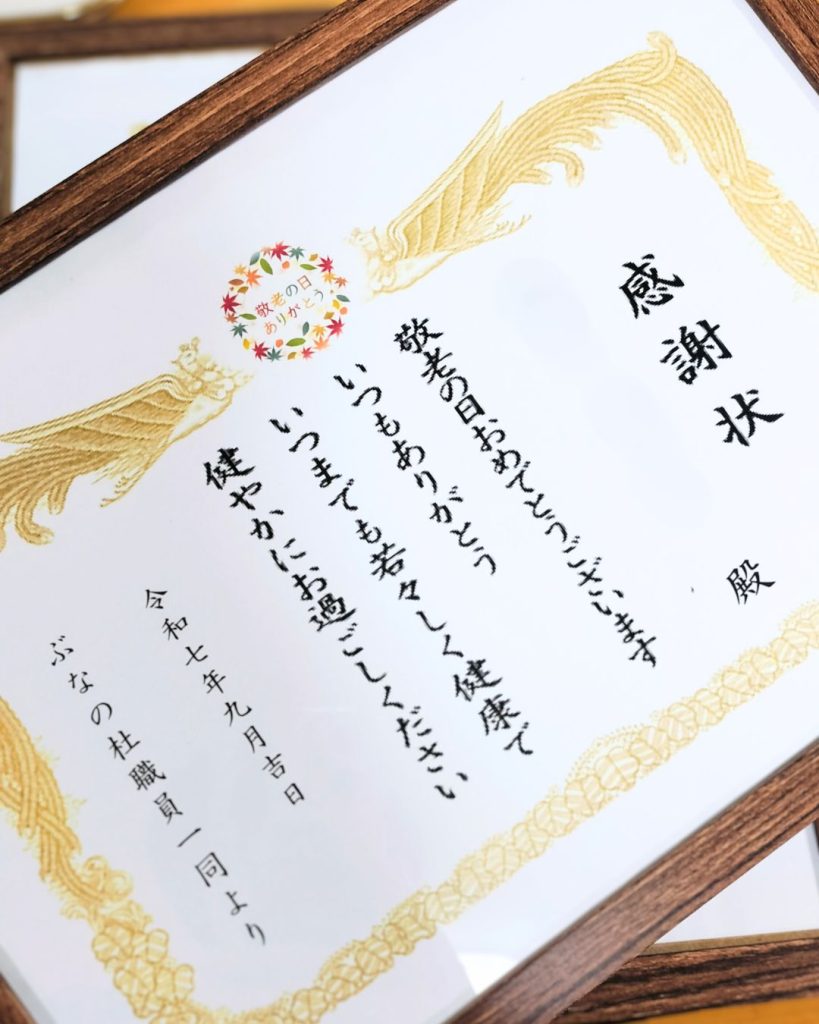 感謝状
殿
敬老の日
ありがとう
敬老の日おめでとうございます
いつもありがとう
いつまでも若々しく健康で
健やかにお過ごしください
令和七年九月吉日
ぶなの杜職員一同より